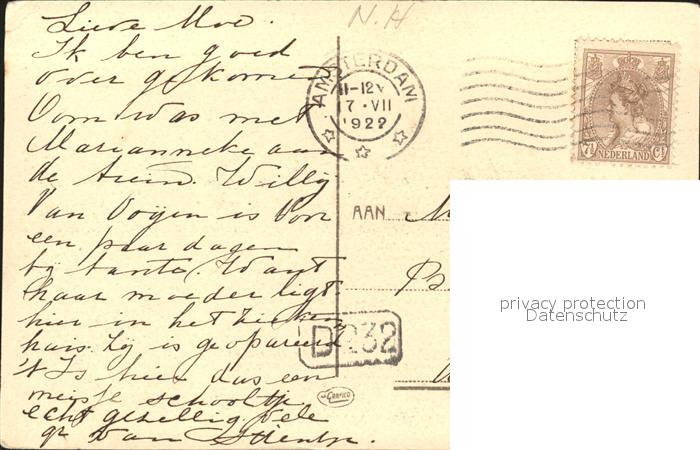 Lieve Moe.
Ik ben goed
over gekomen
Oom was met
Marianneke aan
de trein. Willy
Van Ooijen is voor
een paar dagen
bij tante. Want
haar moeder ligt
hier in het zieken
huis. Zij is geopereerd
't Is hier dus een
meisje schooltje
echt gezellig vele
gr van
N.H
AMSTERDAM
11-12V
17.VII
1922
7½ NEDERLAND Ct
AAN
D 232
GRAFICO
privacy protection
Datenschutz